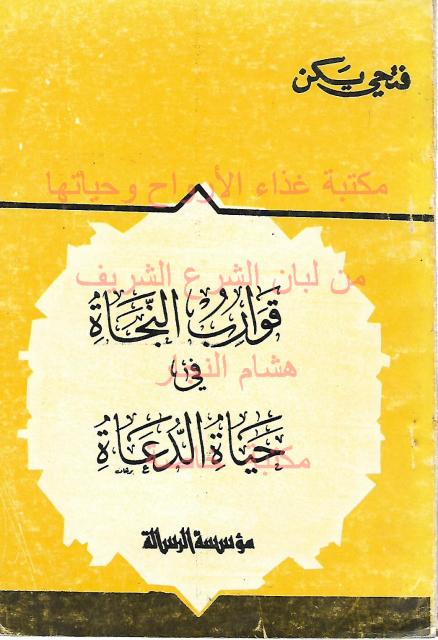 فتحي يكن
مكتبة غذاء الأرواح وحياتها
من لبان الشرع الشريف
قَوَاربُ النَّجَاةُ
هشام النجار
في
حَيَاةِ الدُّعَاةِ
مكتبة خاصة
مؤسسة الرسالة